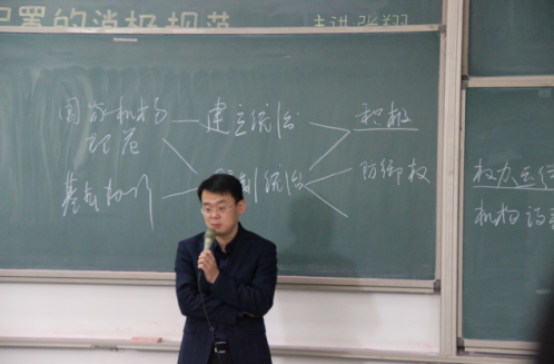 配置的消极规范 主讲 张翔
国家机构 建立统治 积极
规范
基本权利 限制统治 防御权
权力运行
机构设